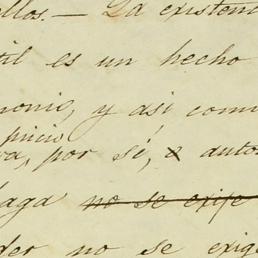 llos.— La existenc
til es un hecho
monio, y asi com
picio
va, por sí, o auto
aga no se exije
der no se exig